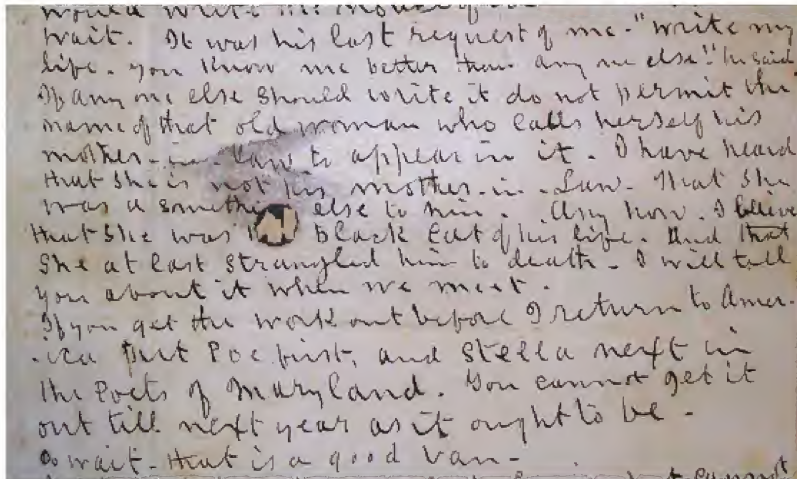 would write
wait. It was his last request of me - "write my
life. you know me better than any one else" he said
If any one else should write it do not permit the
name of that old woman who calls herself his
mother-in-law to appear in it. I have heard
that she is not his mother-in-Law. that she
was a somethi else to him. Any how. I believe
that she was black cat of his life. And that
she at last strangled him to death. I will tell
you about it when we meet.
If you get the work out before I return to Amer-
-ica put Poe first, and Stella next in
the Poets of Maryland. You cannot get it
out till next year as it ought to be.
So wait - that is a good van-
cannot